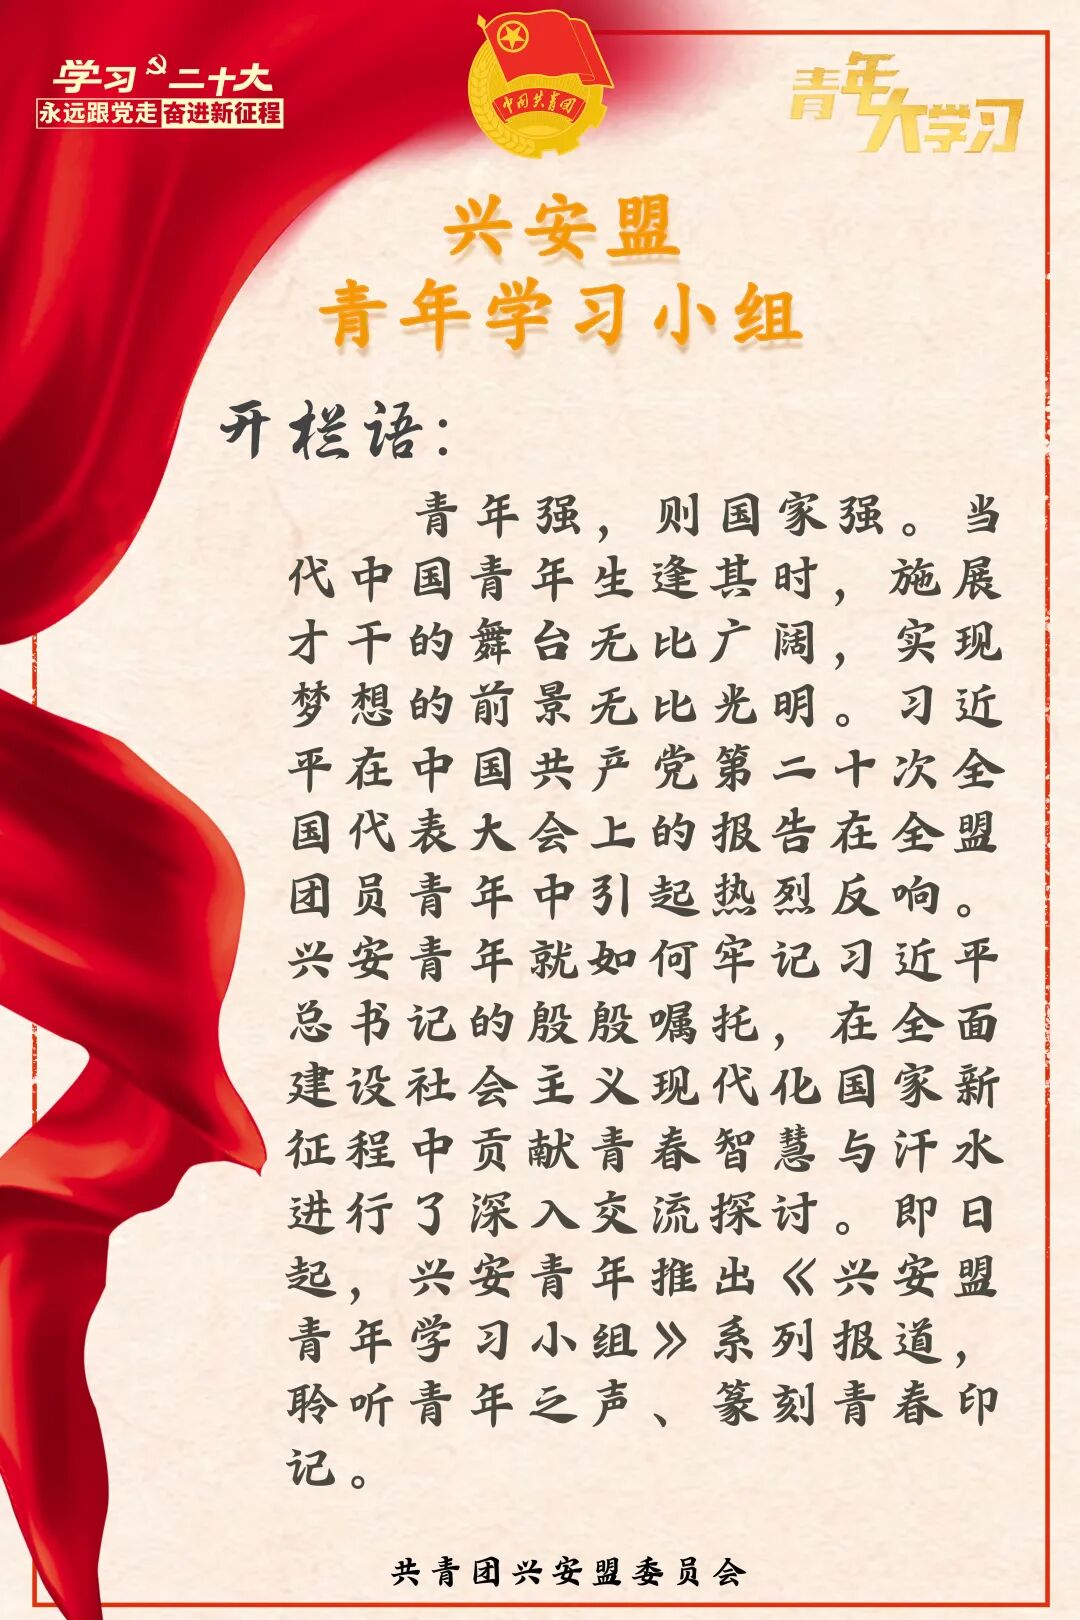 学习二十大
永远跟党走 奋进新征程
中国共青团
青年大学习
兴安盟
青年学习小组
开栏语：
青年强，则国家强。当
代中国青年生逢其时，施展
才干的舞台无比广阔，实现
梦想的前景无比光明。习近
平在中国共产党第二十次全
国代表大会上的报告在全盟
团员青年中引起热烈反响。
兴安青年就如何牢记习近平
总书记的殷殷嘱托，在全面
建设社会主义现代化国家新
征程中贡献青春智慧与汗水
进行了深入交流探讨。即日
起，兴安青年推出《兴安盟
青年学习小组》系列报道，
聆听青年之声、篆刻青春印
记。
共青团兴安盟委员会